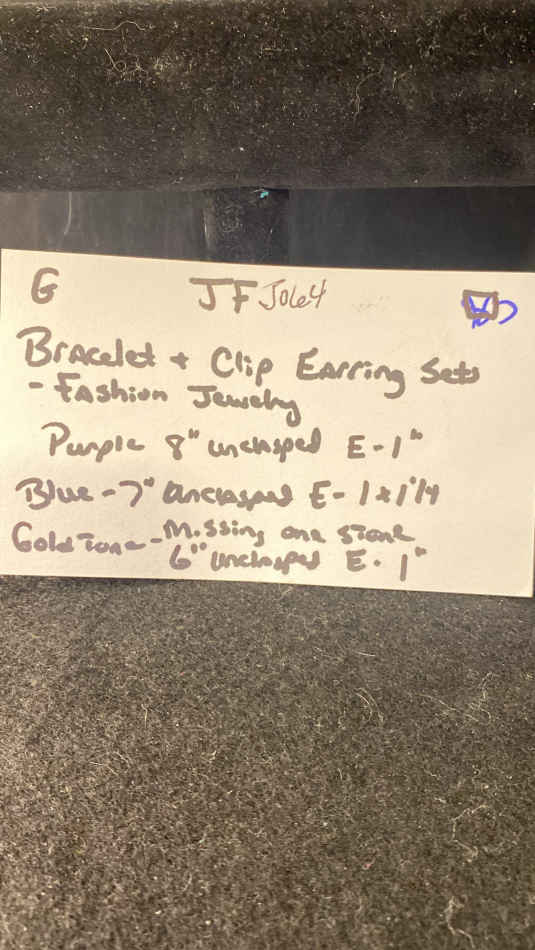 G JF J064
Bracelet + Clip Earring Sets
- Fashion Jewelry
Purple 8" unclasped E-1"
Blue - 7" unclasped E- 1 x 1 1/4
Gold Tone - Missing one stone
6" unclasped E. 1"